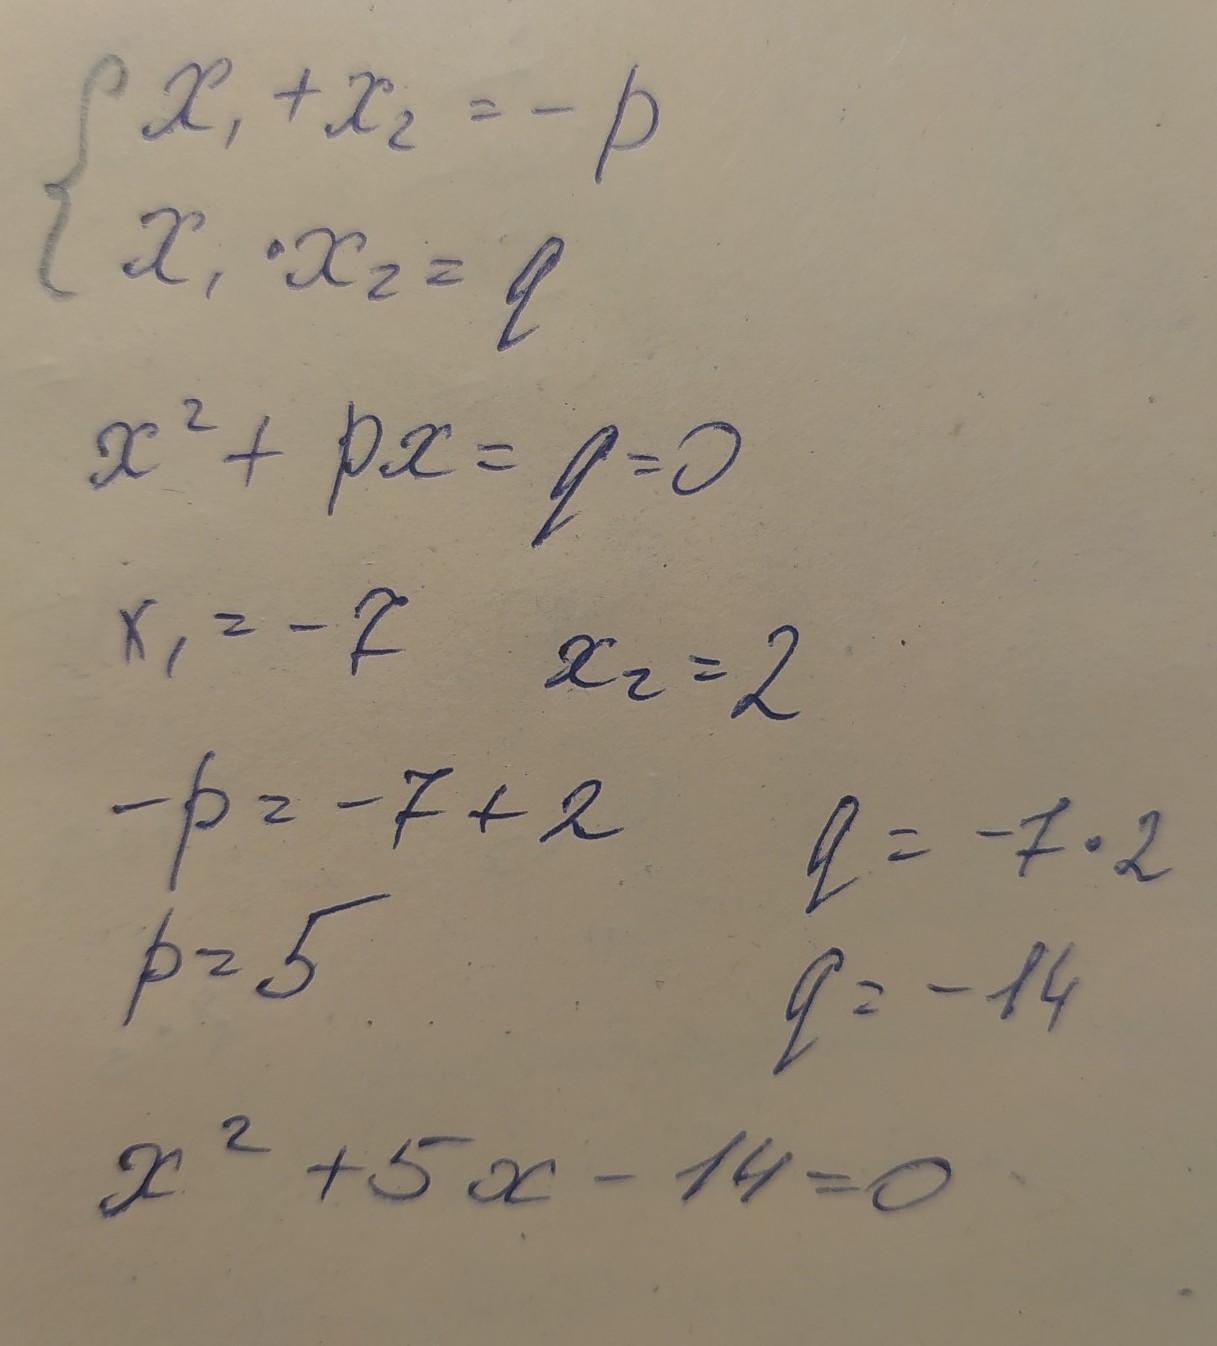 x₁ + x₂ = - p
x₁ · x₂ = q
x² + px = q = 0
x₁ = - 7 x₂ = 2
- p = - 7 + 2 q = - 7 · 2
p = 5 q = - 14
x² + 5x - 14 = 0